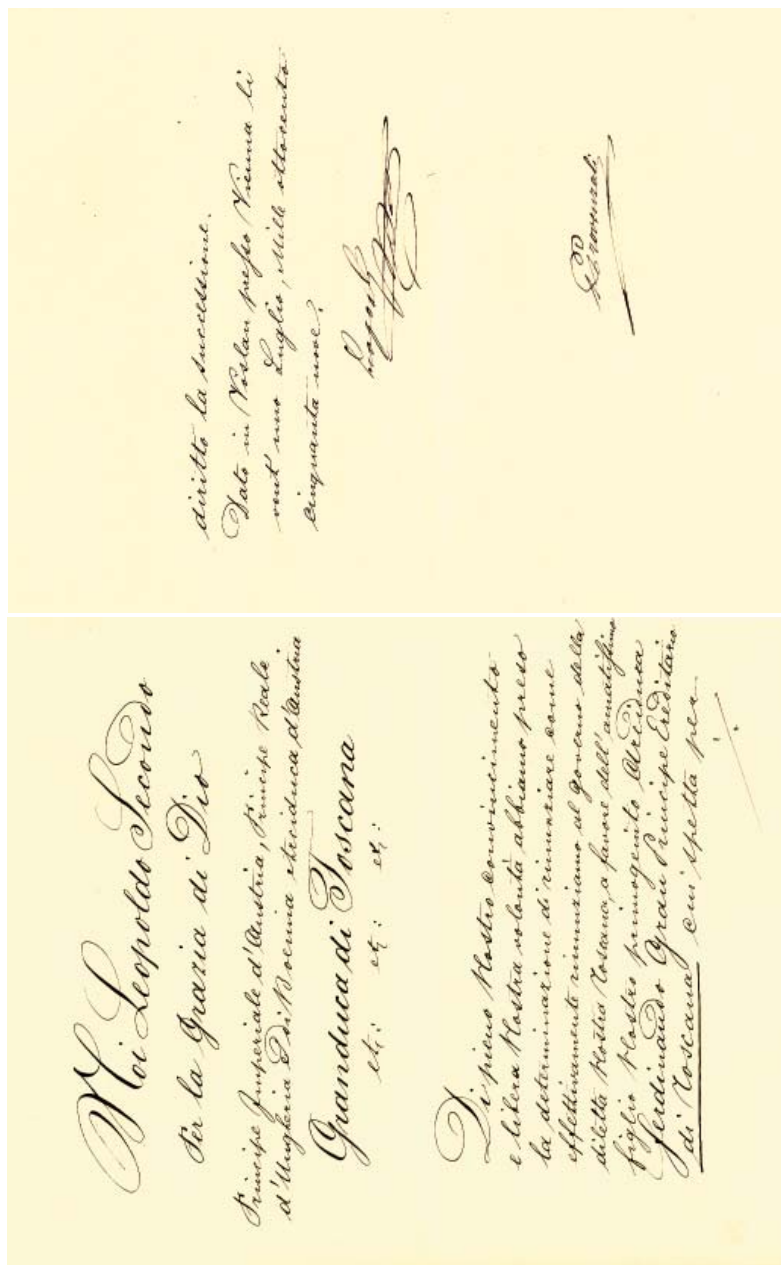 Noi Leopoldo Secondo
Per la Grazia di Dio
Principe Imperiale d'Austria, Principe Reale
d'Ungheria e di Boemia Arciduca d'Austria
Granduca di Toscana
etc: etc: etc:
Di pieno Nostro convincimento
e libera Nostra volontà abbiamo preso
la determinazione di rinunziare come
effettivamente rinunziamo al governo della
diletta Nostra Toscana, a favore dell'amatissimo
figlio Nostro primogenito Arciduca
Ferdinando Gran Principe Ereditario
di Toscana cui spetta per
diritto la successione.
Dato in Voslau presso Vienna li
vent'uno Luglio, Mille ottocento
cinquanta nove.
Leopoldo